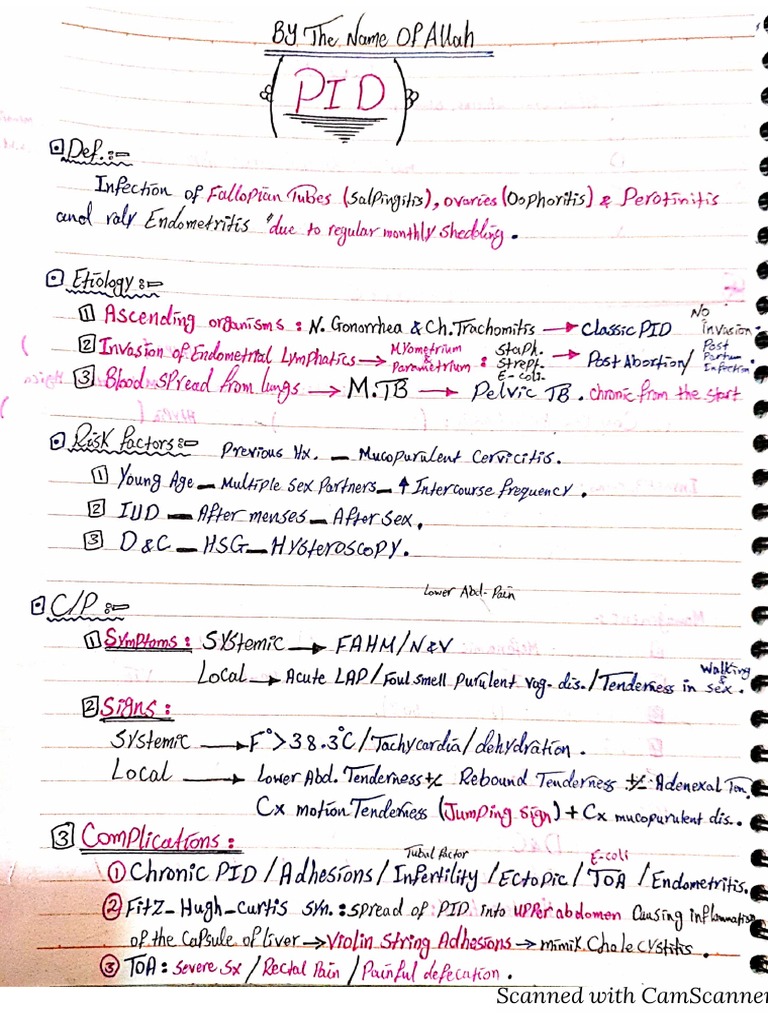 BY The Name Of Allah
PID
Def.:-
Infection of Fallopian Tubes (Salpingitis), ovaries (Oophoritis) & Perotinitis
and raly Endometritis "due to regular monthly shedding.
Etiology:-
1 Ascending organisms : N. Gonorrhea & Ch. Trachomitis → Classic PID No invasion.
2 Invasion of Endometrial Lymphatics → Myometrium & Parametrium : Staph. Strept. E-coli. → Post Abortion/ Post Partum Infection.
3 Blood spread from lungs → M.TB → Pelvic TB. chronic from the start
Risk factors:- Previous Hx. - Mucopurulent Cervicitis.
1 Young Age - Multiple Sex Partners - ↑ Intercourse frequency.
2 IUD - After menses - After sex.
3 D&C - HSG - Hysteroscopy.
Lower Abd. Pain
C/P:-
1 Symptoms: Systemic → FAHM/N&V
Local → Acute LAP/Foul smell purulent vag. dis./Tenderness in Walking & sex.
2 Signs:
Systemic → F° > 38.3°C/Tachycardia/dehydration.
Local → Lower Abd. Tenderness +/- Rebound Tenderness +/- Adenexal Ten.
Cx motion Tenderness (Jumping sign) + Cx mucopurulent dis..
3 Complications:
Tubal factor E-coli
1 Chronic PID/Adhesions/Infertility/Ectopic/TOA/Endometritis.
2 Fitz-Hugh-Curtis syn.: spread of PID into upper abdomen Causing inflammation
of the capsule of liver → Violin String Adhesions → mimik Cholecystitis.
3 TOA: severe Sx/Rectal Pain/Painful defecation.
Scanned with CamScanner